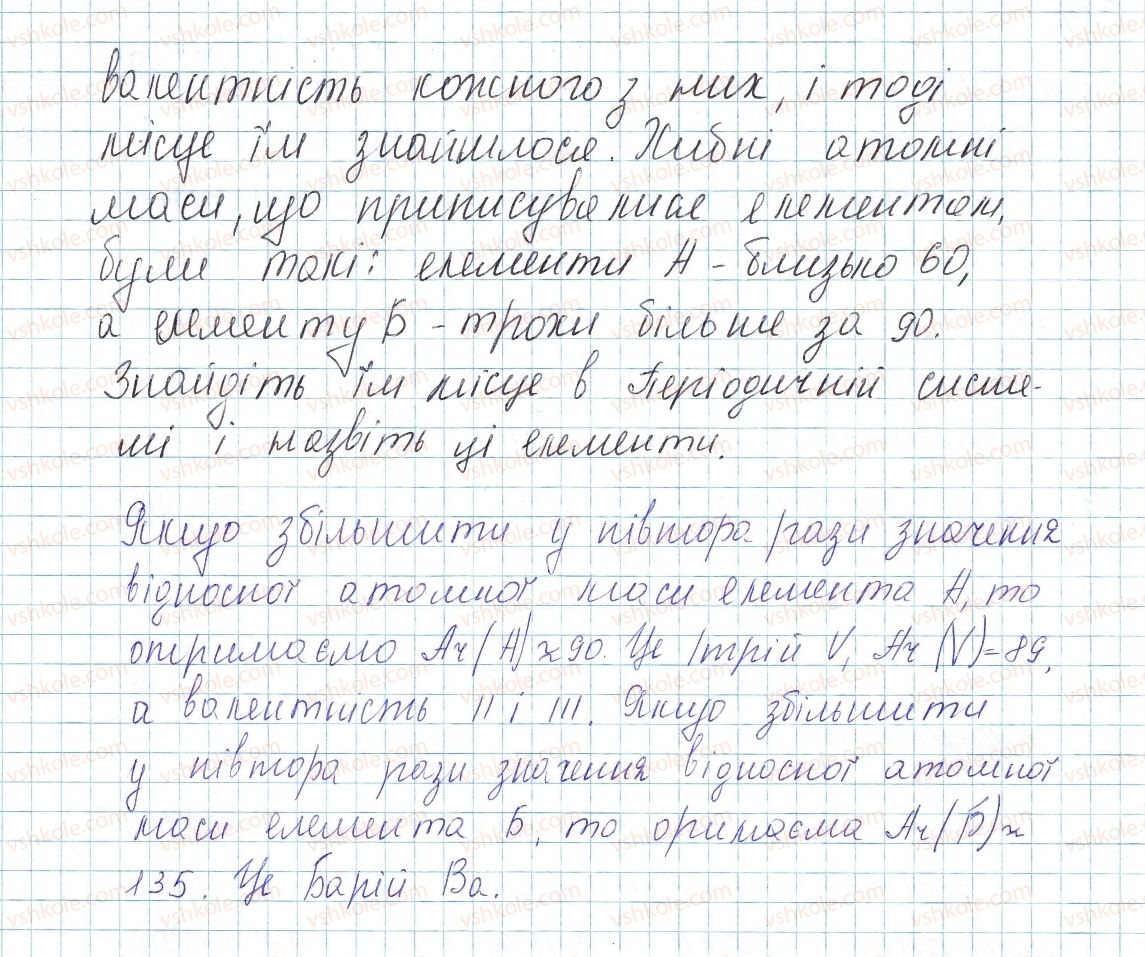 валентність кожного з них, і тоді
місце їм знайшлося. Хибні атомні
маси, що приписувалися елементам,
були такі: елементи А - близько 60,
а елементу Б - трохи більше за 90.
Знайдіть їм місце в Періодичній систе-
мі і назвіть ці елементи.
Якщо збільшити у півтора рази значення
відносної атомної маси елемента А, то
отримаємо Ar(A)≈90. Це Ітрій V, Ar(V)=89,
а валентність II і III. Якщо збільшити
у півтора рази значення відносної атомної
маси елемента Б, то оримаєма Ar(Б)≈
135. Це Барій Ba.
vshkole.com